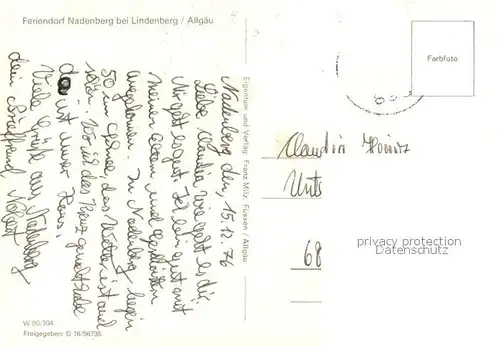 Feriendorf Nadenberg bei Lindenberg / Allgäu
Nadenberg den, 15.12.76
Liebe Claudia wie geht es dir.
Mir geht es gut. Ich bin gut mit
meinen Eltern und Geschwistern
angekommen. In Nadenberg liegen
50 cm Schnee, das Wetter ist auch
schön. Wo ich das Kreuz gemacht habe
da ist unser Haus.
Viele Grüße aus Nadenberg
dein Brieffreund
Eigentum und Verlag Franz Milz, Füssen / Allgäu
Farbfoto
68
privacy protection
Datenschutz
W 90/304
Freigegeben: G 16/56735